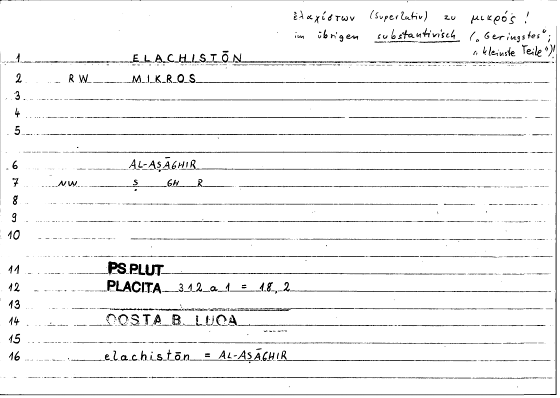 ἐλαχίστων (Superlativ) zu μικρός!
im übrigen substantivisch („Geringstes";
„kleinste Teile")!
1 ELACHISTŌN
2 RW MIKROS
3
4
5
6 AL-AṢĀGHIR
7 NW Ṣ GH R
8
9
10
11 PS PLUT
12 PLACITA 312 a 1 = 18, 2
13
14 COSTA B. LUCA
15
16 elachistōn = AL-AṢĀGHIR